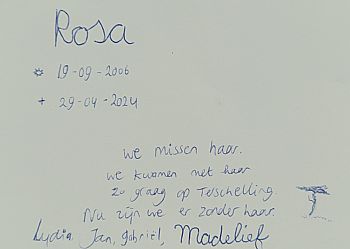 Rosa
* 19-09-2006
+ 29-04-2024
we missen haar.
we kwamen met haar
zo graag op Terschelling.
Nu zijn we er zonder haar.
Lydia, Jan, Gabriël, Madelief